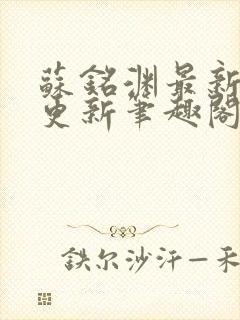 蘇銘淵最新
更新筆趣閣
鉄尔沙汗一禾